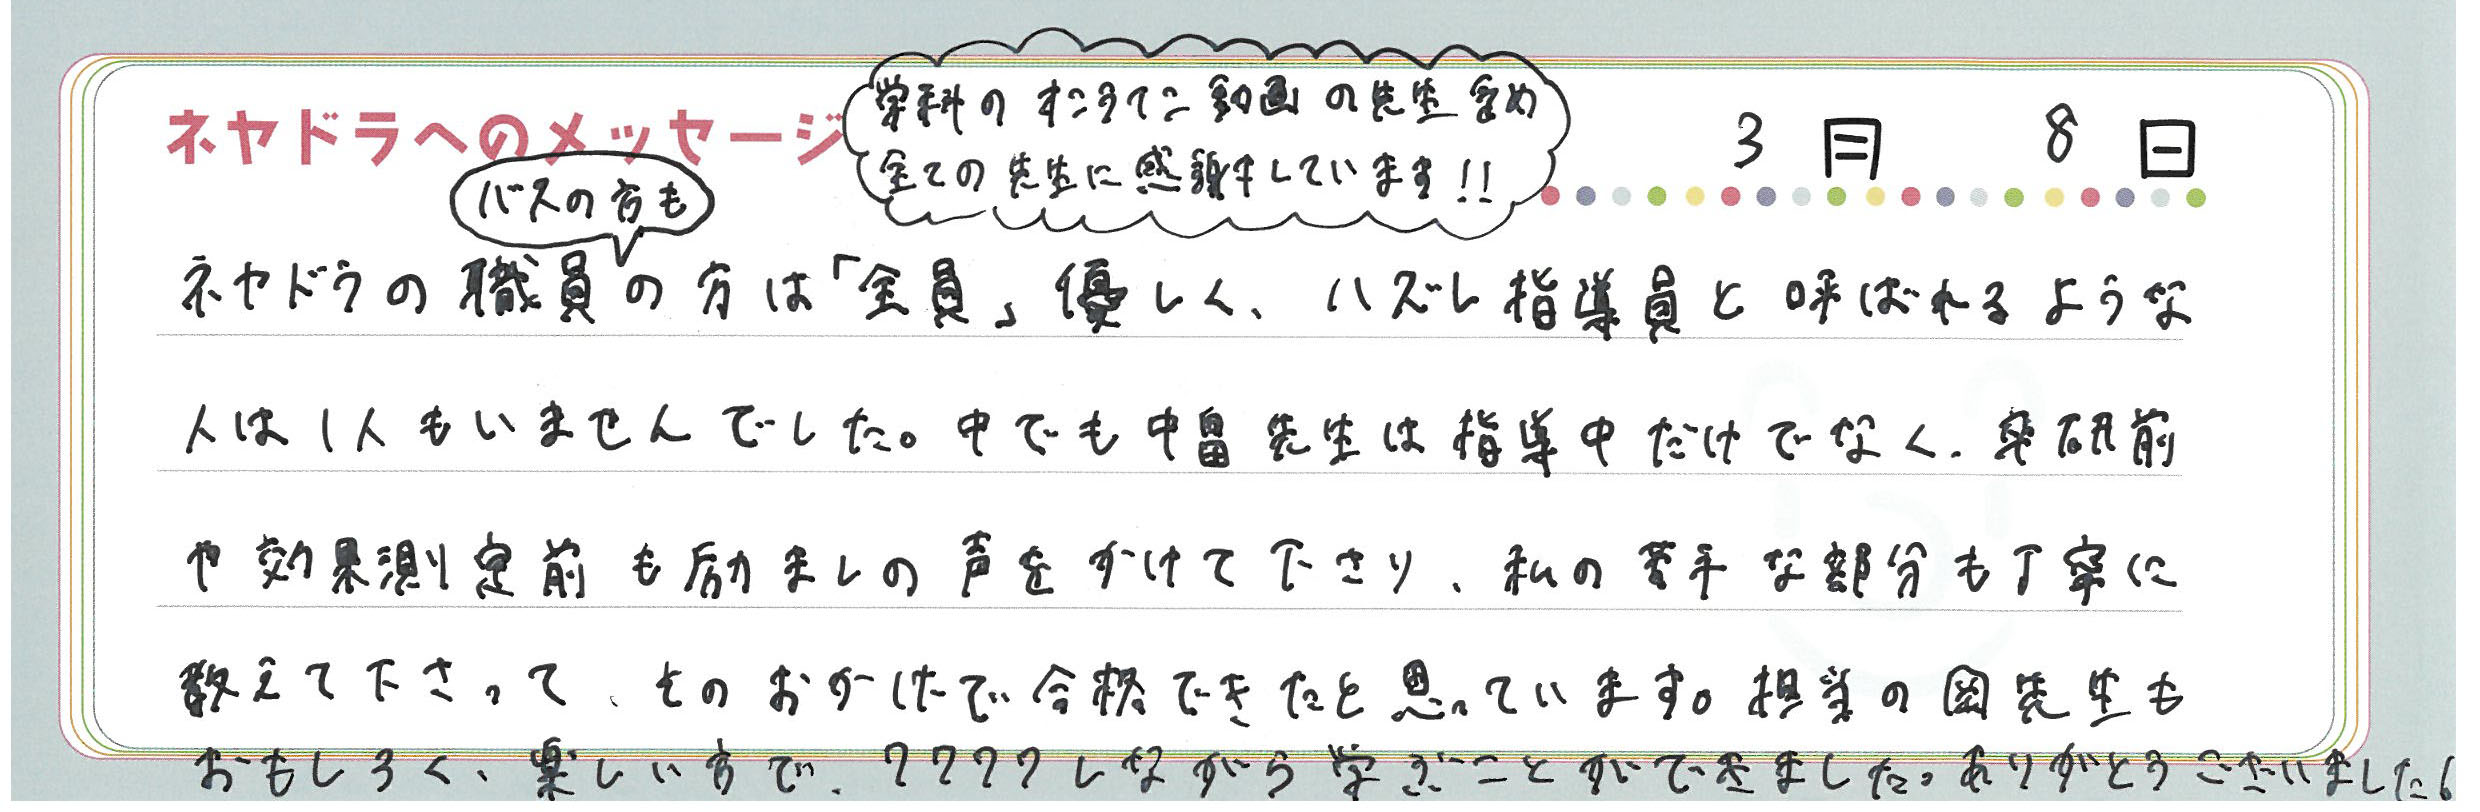 ネヤドラへのメッセージ
学科のオンライン動画の先生含め
全ての先生に感謝しています!!
3月 8日
バスの方も
ネヤドラの職員の方は「全員」優しく、ハズレ指導員と呼ばれるような
人は1人もいませんでした。中でも中留先生は指導中だけでなく、卒研前
や効果測定前も励ましの声をかけて下さり、私の苦手な部分も丁寧に
教えて下さって、そのおかげで合格できたと思っています。担当の岡先生も
おもしろく、楽しい方で、ワクワクしながら学ぶことができました。ありがとうございました